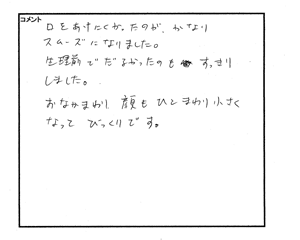 コメント
口をあけにくかったのが、かなり
スムーズになりました。
生理前でだるかったのも すっきり
しました。
おなかまわり 顔も ひとまわり小さく
なって びっくりです。